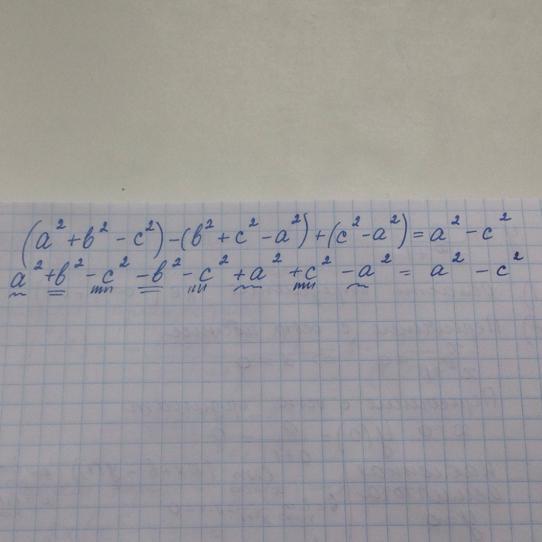 (a² + b² - c²) - (b² + c² - a²) + (c² - a²) = a² - c²
a² + b² - c² - b² - c² + a² + c² - a² = a² - c²